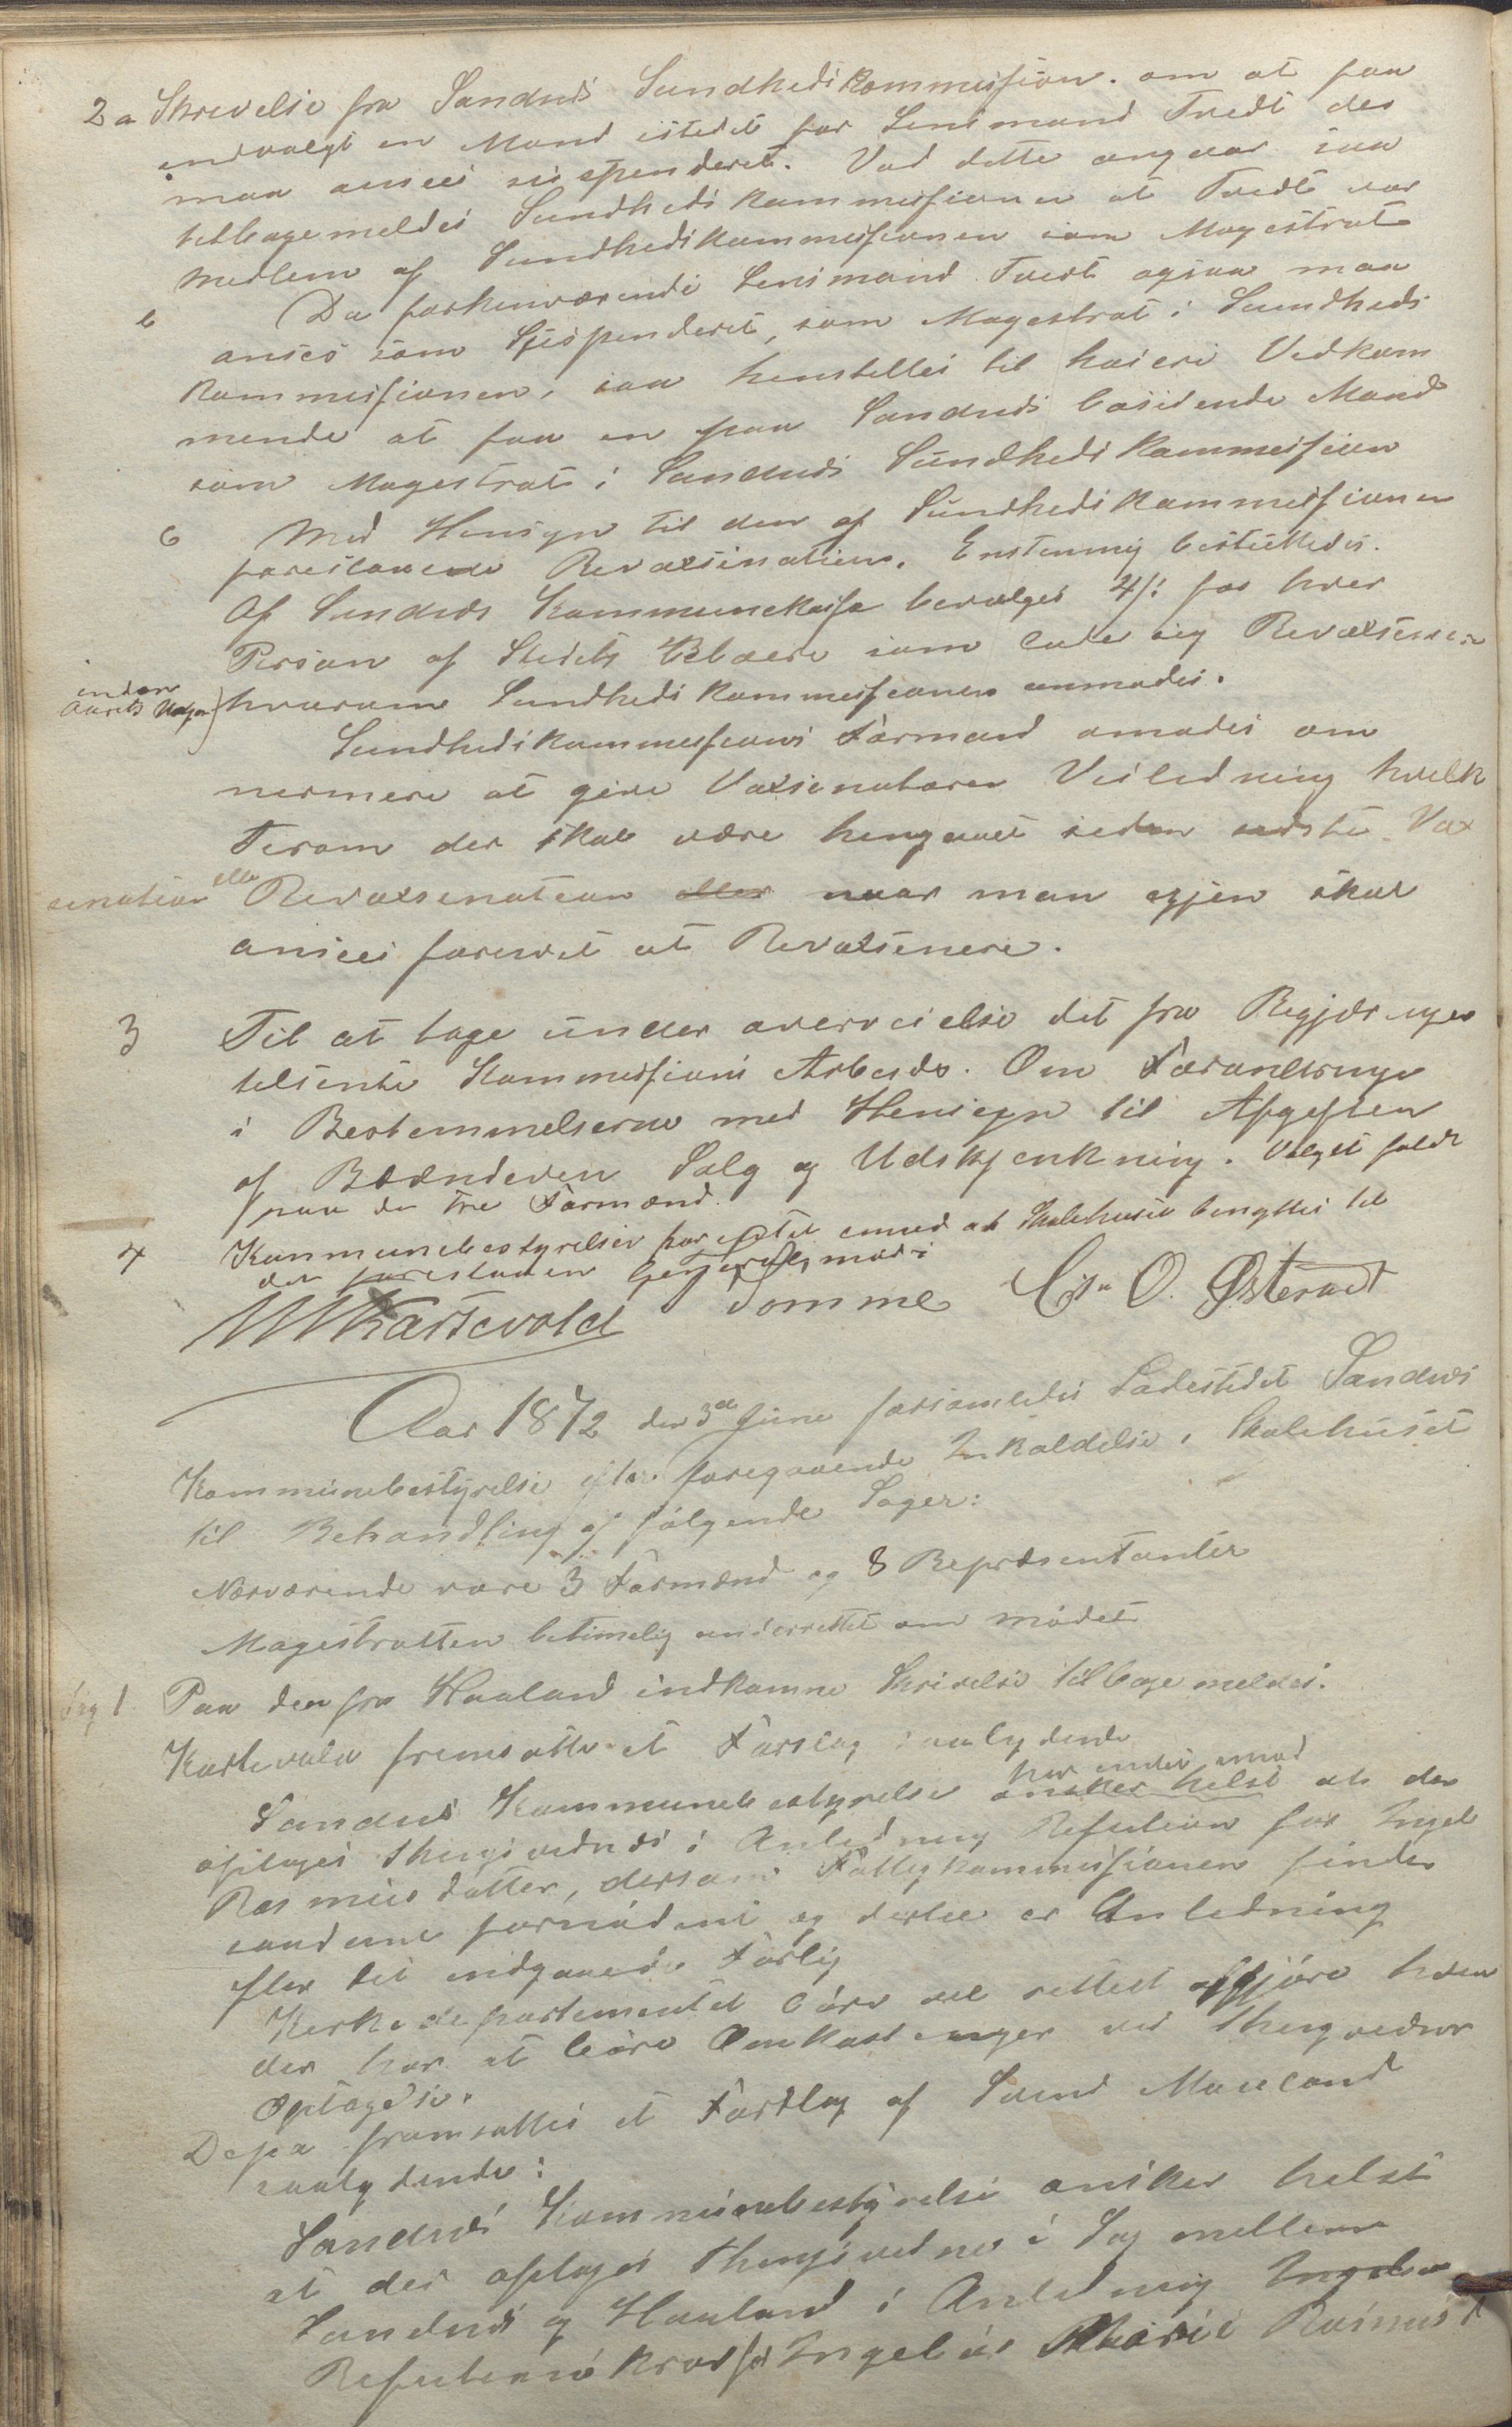 2 a Skrivelse fra Sandnæs Sundhedskommission. om at faa
indvalgt en Mand istedet for Lensmand Tvedt der
maa ansees suspenderet. Vad dette angaar saa
tilbagemeldes Sundhedskommissionen at Tvedt var
Medlem af Sundhedskommissionen som Magestrat
b Da forhenværende Lensmand Tvedt ogsaa maa
ansees som Suspenderet, som Magestrat i Sundheds
Kommissionen, saa henstilles til høiere Vedkom
mende at faa en paa Sandnæs bosidende Mand
som Magestrat i Sandnæs Sundheds Kommission
c Med Hensyn til den af Sundhedskommissionen
foreslaaede Revaxination. Enstemmig besluttedes.
Af Sandnæs Kommunekasse bevælges 4 s: for hver
Person af Stedets Beboere som lade sig Revaxsinere
inden Aarets Udgan) hvorom Sundhedskommissionen anmodes.
Sundhedskommissions Formand amodes om
nermere at give Vaxsinatøren Veiledning hvilk
Tirom der skal være hengaaet siden sidste Vax
sination eller Revaxsenation eller naar man igjen skal
ansees forevdt at Revaxsinere.
3 Til at tage under overveielse det fra Regjæringen
telsente Kommissions Arbeide. Om Forandringer
i Bestemmelserne med Hensyn til Afgeften
af Brænderen Salg og Udskjenkning. Valget faldt
paa de tre Formænd.
4 Kommunebestyrelsen har intet emod at Skolehuset benyttes til
det foreslaaen
M Kartevold Somme Chr O. Østeraad
Aar 1872 den 3de June forsamledes Ladestedet Sandnæs
Kommunebestyrelse efter foregaaende Inkaldelse i Skolehuset
til Behandling af følgende Sager:
Nærværende vare 3 Formænd og 8 Repræsentanter
Magestratten betimelig underrettet om mødet
Sag 1 Paa den fra Haaland indkomne Skrivelse tilbagemeldes.
Kartevold fremsatte et Forslag saalydende
Sandnæs Kommunebestyrelse ønsker helst har intet emod at der
optages Thingsvidnes i Anledning Refution for Ingeb
Rasmusdatter, dersom Fattigkommissionen finder
saadenne fornødent og dertil er Anledning
efter det indgaaede Forlig
Kerkedepartementet bør vel rettest afgjøre hvem
der har at bære Omkostninger ved Thingvednes
Optagelse.
Depa fremsattes et Forslag af Svend Maueland
saalydende:
Sandnæs Kommunebestyrelse ønsker helst
at der optages Thingsvednes i Sag mellem
Sandnæs og Haaland i Anledning Ingebor
Refutions krav for Ingebor Marie Rasmusd